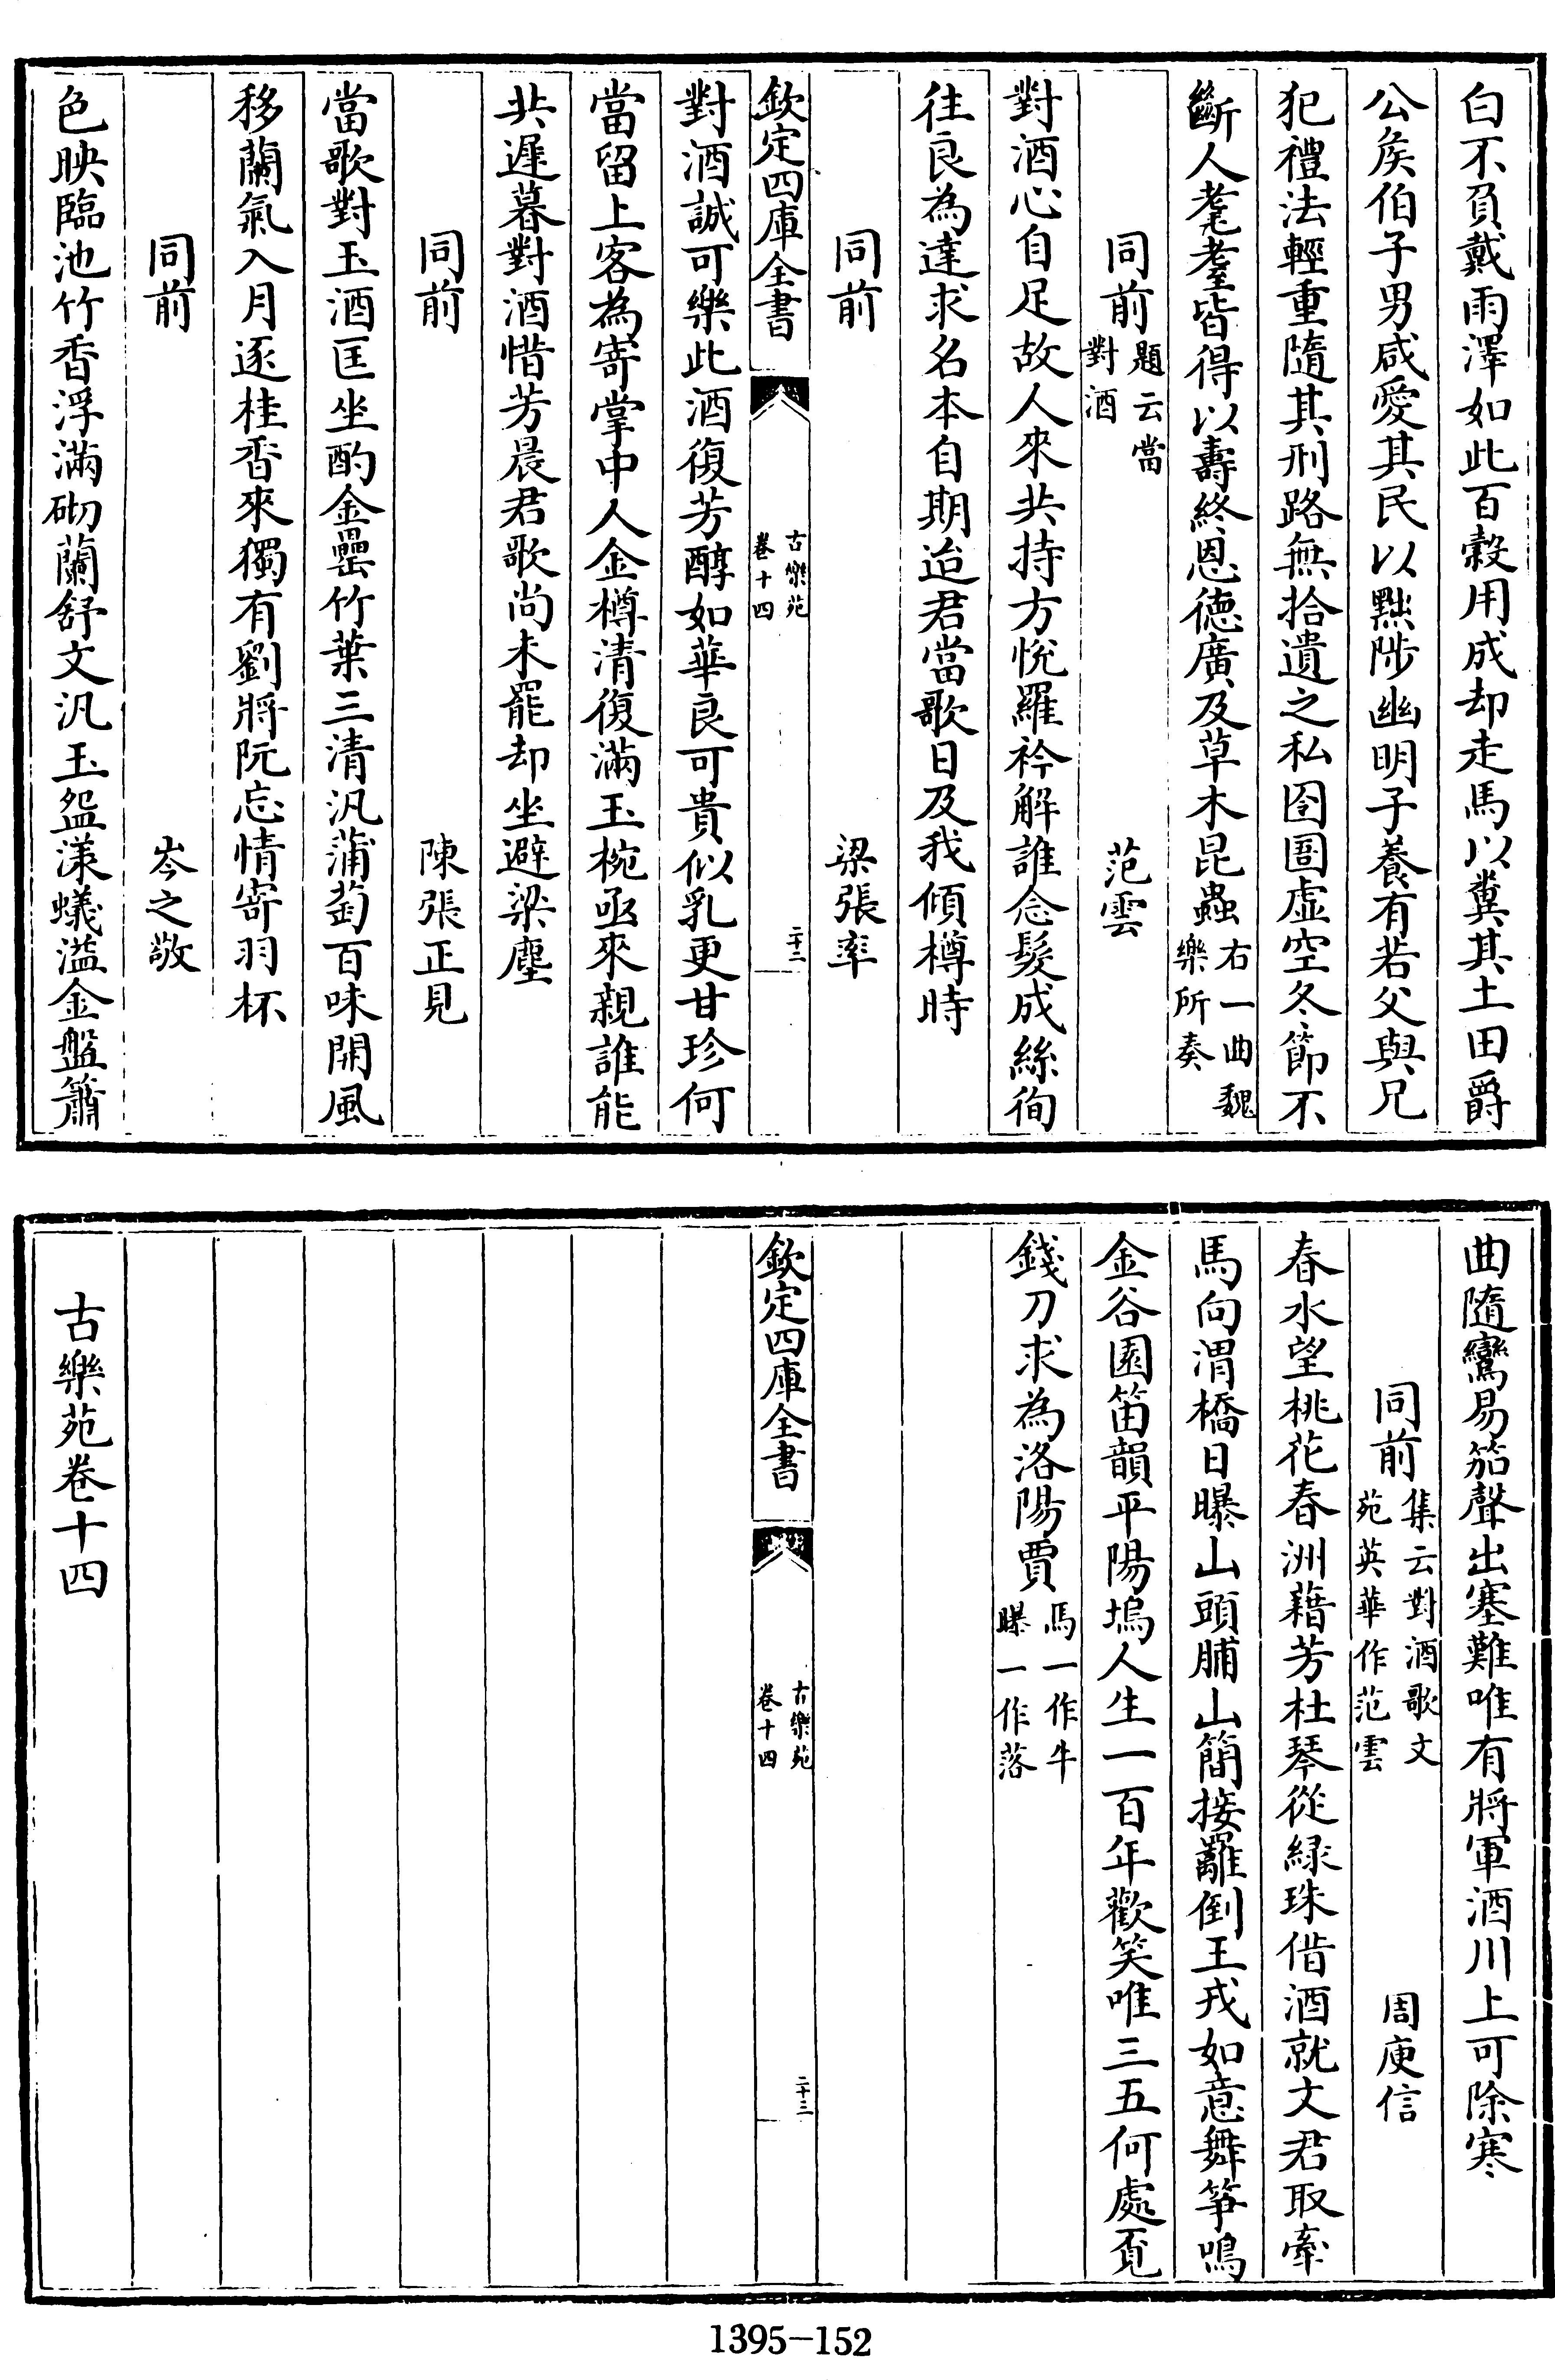 白不負戴雨澤如此百穀用成却走馬以糞其土田爵
公矦伯子男咸愛其民以黜陟幽明子養有若父與兄
犯禮法輕重隨其刑路無拾遺之私囹圄虚空冬節不
斷人耄耋皆得以壽終恩德廣及草木昆蟲右一曲魏
樂所奏
同前題云當
對酒
范雲
對酒心自足故人來共持方悦羅衿解誰念髮成絲徇
往良為達求名本自期迨君當歌日及我傾樽時
同前
梁張率
欽定四庫全書
古樂苑
卷十四
二十二
對酒誠可樂此酒復芳醇如華良可貴似乳更甘珍何
當留上客為寄掌中人金樽清復滿玉椀亟來親誰能
共遲暮對酒惜芳晨君歌尚未罷却坐避梁塵
同前
陳張正見
當歌對玉酒匡坐酌金罍竹葉三清汎蒲萄百味開風
移蘭氣入月逐桂香來獨有劉將阮忘情寄羽杯
同前
岑之敬
色映臨池竹香浮滿砌蘭舒文汎玉盌漾蟻溢金盤簫
曲隨鸞易笳聲出塞難唯有將軍酒川上可除寒
同前集云對酒歌文
苑英華作范雲
周庾信
春水望桃花春洲藉芳杜琴從緑珠借酒就文君取牽
馬向渭橋日曝山頭脯山簡接䍦倒王戎如意舞箏鳴
金谷園笛韻平陽塢人生一百年歡笑唯三五何處覓
錢刀求為洛陽賈馬一作牛
曝一作落
欽定四庫全書
古樂苑
卷十四
二十三
古樂苑卷十四
1395-152